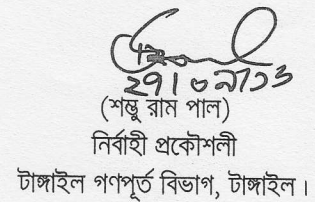 (শম্ভু রাম পাল)
নির্বাহী প্রকৌশলী
টাঙ্গাইল গণপূর্ত বিভাগ, টাঙ্গাইল।